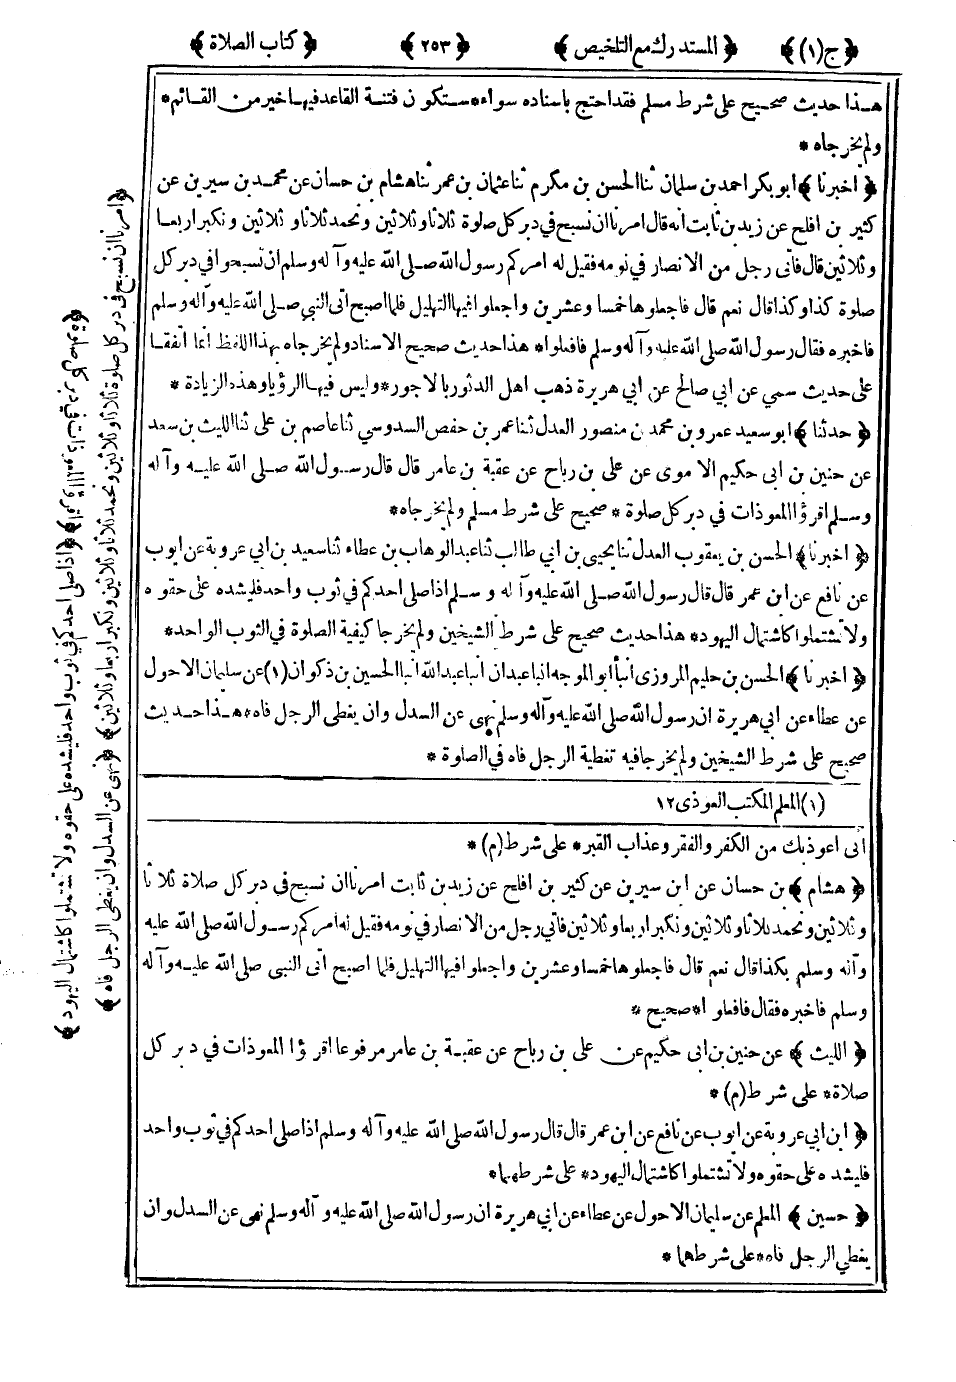 ﴿ ج (١) ﴾ ﴿ المستدرك مع التلخيص ﴾ ﴿ ٢٥٣ ﴾ ﴿ كتاب الصلاة ﴾
هذا حديث صحيح على شرط مسلم فقد احتج باسناده سواء * ستكون فتنة القاعد فيها خير من القائم *
ولم يخرجاه *
﴿ اخبرنا ﴾ ابو بكر احمد بن سلمان ثنا الحسن بن مكرم ثنا عثمان بن عمر ثنا هشام بن حسان عن محمد بن سيرين عن
كثير بن افلح عن زيد بن ثابت انه قال امرنا ان نسبح في دبر كل صلوة ثلاثا وثلاثين ونحمد ثلاثا وثلاثين ونكبر اربعا
وثلاثين قال فأتى رجل من الانصار في نومه فقيل له امركم رسول الله صلى الله عليه وآله وسلم ان تسبحوا في دبر كل
صلوة كذا وكذا قال نعم قال فاجعلوها خمسا وعشرين واجعلوا فيها التهليل فلما اصبح اتى النبي صلى الله عليه وآله وسلم
فاخبره فقال رسول الله صلى الله عليه وآله وسلم فافعلوا * هذا حديث صحيح الاسناد ولم يخرجاه بهذا اللفظ انما اتفقا
على حديث سمي عن ابي صالح عن ابي هريرة ذهب اهل الدثور بالاجور * وليس فيها الرؤيا وهذه الزيادة *
﴿ حدثنا ﴾ ابو سعيد عمرو بن محمد بن منصور العدل ثنا عمر بن حفص السدوسي ثنا عاصم بن على ثنا الليث بن سعد
عن حنين بن ابى حكيم الاموى عن على بن رباح عن عقبة بن عامر قال قال رسول الله صلى الله عليه وآله
وسلم اقرؤا المعوذات في دبر كل صلوة * صحيح على شرط مسلم ولم يخرجاه *
﴿ اخبرنا ﴾ الحسن بن يعقوب العدل ثنا يحيى بن ابي طالب ثنا عبد الوهاب بن عطاء ثنا سعيد بن ابي عروبة عن ايوب
عن نافع عن ابن عمر قال قال رسول الله صلى الله عليه وآله وسلم اذا صلى احدكم في ثوب واحد فليشده على حقوه
ولا تشتملوا كاشتمال اليهود * هذا حديث صحيح على شرط الشيخين ولم يخرجا كيفية الصلوة في الثوب الواحد *
﴿ اخبرنا ﴾ الحسن بن حليم المروزى انبأ ابو الموجه انبا عبدان انبا عبد الله انبا الحسين بن ذكوان (١) عن سليمان الاحول
عن عطاء عن ابي هريرة ان رسول الله صلى الله عليه وآله وسلم نهى عن السدل وان يغطى الرجل فاه * هذا حديث
صحيح على شرط الشيخين ولم يخرجا فيه تغطية الرجل فاه في الصلوة *
(١) المعلم المكتب العوذى ١٢
انى اعوذ بك من الكفر والفقر وعذاب القبر * على شرط (م) *
﴿ هشام ﴾ بن حسان عن ابن سيرين عن كثير بن افلح عن زيد بن ثابت امرنا ان نسبح في دبر كل صلاة ثلاثا
وثلاثين ونحمد ثلاثا وثلاثين ونكبر اربعا وثلاثين فأتي رجل من الانصار في نومه فقيل له امركم رسول الله صلى الله عليه
وآله وسلم بكذا قال نعم قال فاجعلوها خمسا وعشرين واجعلوا فيها التهليل فلما اصبح اتى النبي صلى الله عليه وآله
وسلم فاخبره فقال فافعلوا * صحيح *
﴿ الليث ﴾ عن حنين بن ابى حكيم عن على بن رباح عن عقبة بن عامر مرفوعا اقرؤا المعوذات في دبر كل
صلاة * على شرط (م) *
﴿ ابن ابي عروبة عن ايوب عن نافع عن ابن عمر قال قال رسول الله صلى الله عليه وآله وسلم اذا صلى احدكم في ثوب واحد
فليشده على حقوه ولا تشتملوا كاشتمال اليهود * على شرطهما *
﴿ حسين ﴾ المعلم عن سليمان الاحول عن عطاء عن ابي هريرة ان رسول الله صلى الله عليه وآله وسلم نهى عن السدل وان
يغطي الرجل فاه * على شرطهما *
﴿ امرنا ان نسبح في دبر كل صلوة ثلاثا وثلاثين ونحمد ثلاثا وثلاثين ونكبر اربعا وثلاثين ﴾ ﴿ نهى عن السدل وان يغطى الرجل فاه ﴾
﴿ اذا صلى احدكم في ثوب واحد فليشده على حقوه ولا تشتملوا كاشتمال اليهود ﴾